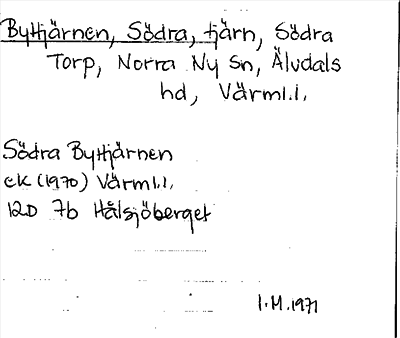 Byttjärnen, Södra, tjärn, Södra
Torp, Norra Ny Sn, Älvdals
hd, Värml.l.
Södra Byttjärnen
ek (1970) Värml.l.
12D 7b Hålsjöberget
I.M. 1971